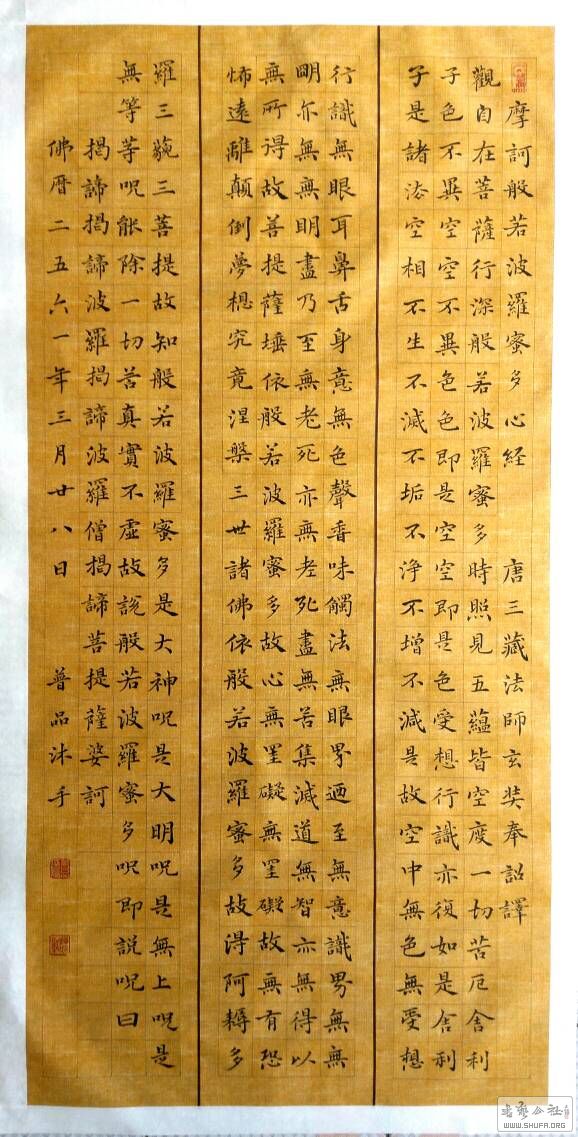 摩訶般若波羅蜜多心經 唐三藏法師玄奘奉詔譯
觀自在菩薩行深般若波羅蜜多時照見五蘊皆空度一切苦厄舍利
子色不異空空不異色色即是空空即是色受想行識亦復如是舍利
子是諸法空相不生不滅不垢不淨不增不減是故空中無色無受想
行識無眼耳鼻舌身意無色聲香味觸法無眼界迺至無意識界無無
明亦無無明盡乃至無老死亦無老死盡無苦集滅道無智亦無得以
無所得故菩提薩埵依般若波羅蜜多故心無罣礙無罣礙故無有恐
怖遠離顛倒夢想究竟涅槃三世諸佛依般若波羅蜜多故得阿耨多
羅三藐三菩提故知般若波羅蜜多是大神呪是大明呪是無上呪是
無等等呪能除一切苦真實不虛故說般若波羅蜜多呪即說呪曰
揭諦揭諦波羅揭諦波羅僧揭諦菩提薩婆訶
佛曆二五六一年三月廿八日 普品沐手
WWW.SHUFA.ORG